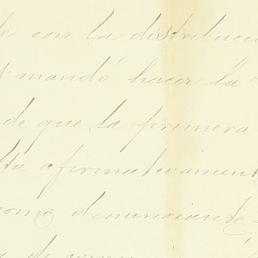 de con la distribució
mandó hacer la
de que la primera
afirmativament
como denunciante
de